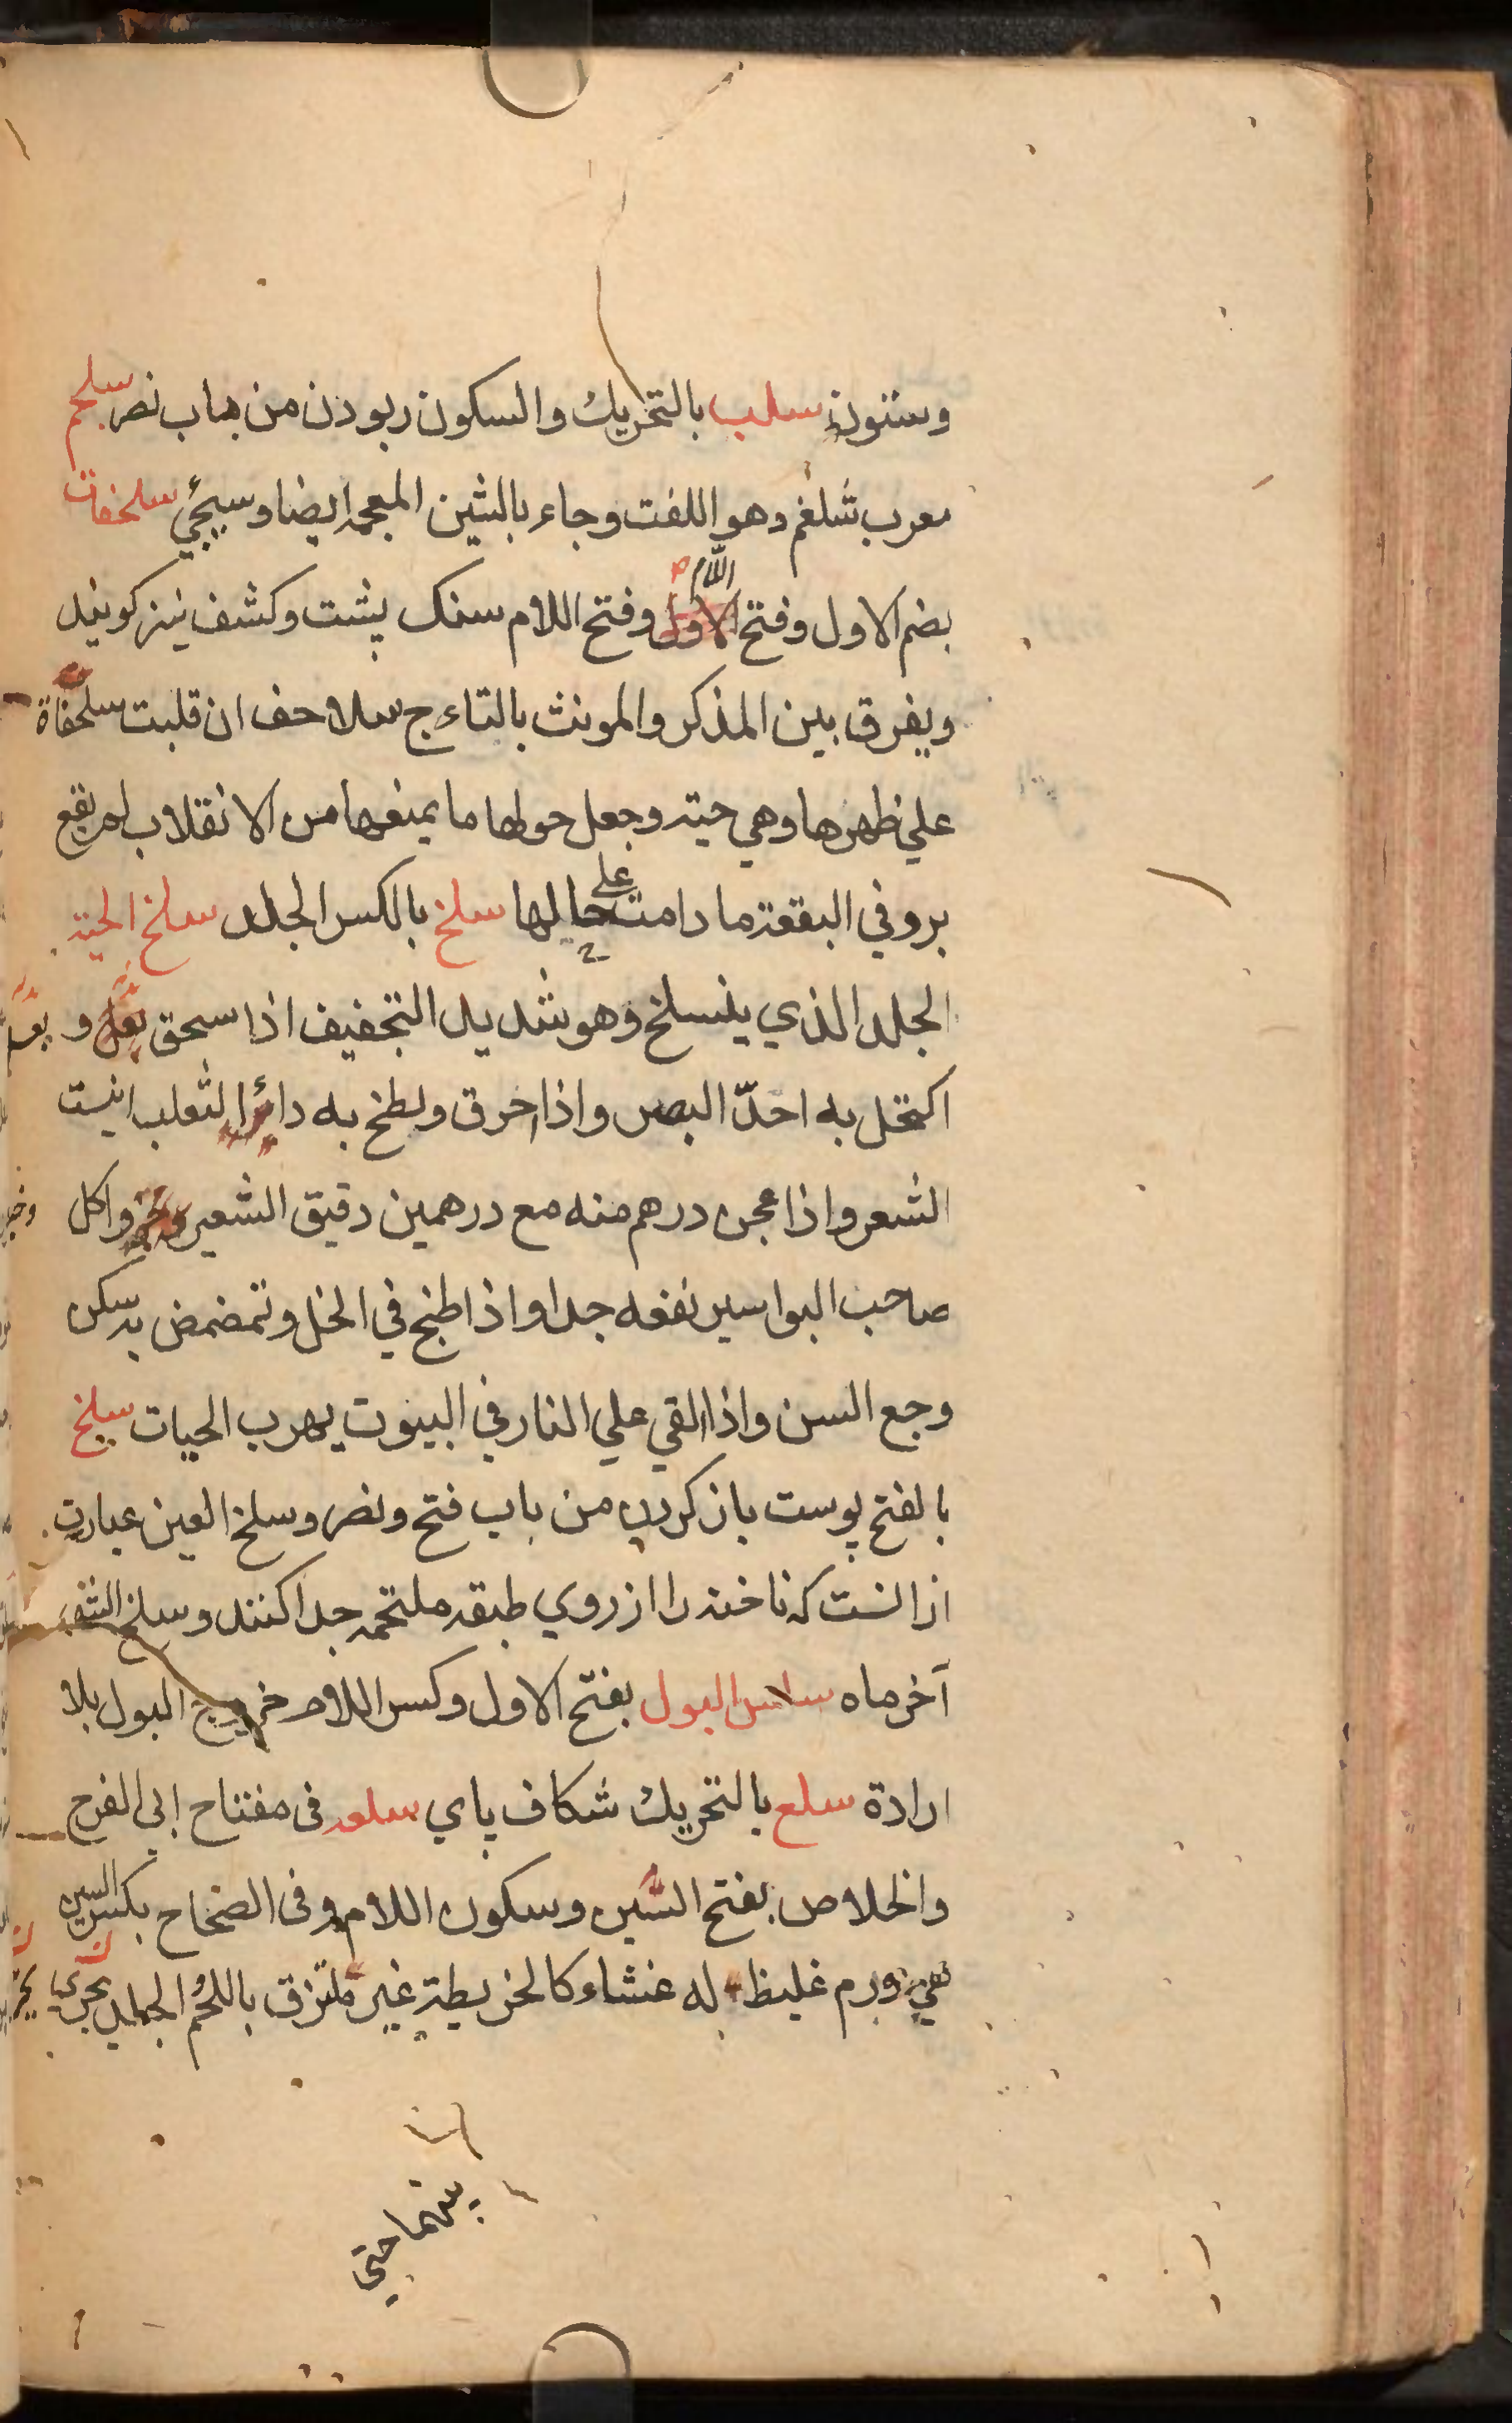 وستون سلب بالتحريك والسكون ربودن من باب نصر سلجم
معرب شلغم وهو اللفت وجاء بالشين المعجمه ايضا وسيجي سلحفات
بضم الاول وفتح اللام وفتح اللام سنك پشت وكشف نيز كويند
ويفرق بين المذكر والمونث بالتاء ج سلاحف ان قلبت سلحفاة
علي ظهرها وهي حيته وجعل حولها ما يمنعها من الانقلاب لم يقع
برد في البقعة ما دامت علي حالها سلخ بالكسر الجلد سلخ الحية
الجلد الذي ينسلخ وهو شديد التجفيف اذا سحق و
اكتحل به احدّ البصر واذا احرق ولطخ به داء الثعلب انبت
الشعر واذا عجن درهم منه مع درهمين دقيق الشعير وخبز واكل
صاحب البواسير نفعه جدا واذا طبخ في الخل وتمضمض به سكن
وجع السن واذا القي علي النار في البيوت يهرب الحيات سلخ
بالفتح پوست باز كردن من باب فتح ونصر وسلخ العين عبارت
از انست كه ناخنه را از روي طبقه ملتحمه جدا كنند وسلخ الشهر
آخر ماه سلس البول بفتح الاول وكسر اللام خروج البول بلا
ارادة سلع بالتحريك شكاف پاي سلعه فى مفتاح الي الفرج
والخلاص بفتح السّين وسكون اللام وفى الصحاح بكسر السين
فهي ورم غليظ له غشاء كالخريطة غير ملتزق باللحم الجلد يجري